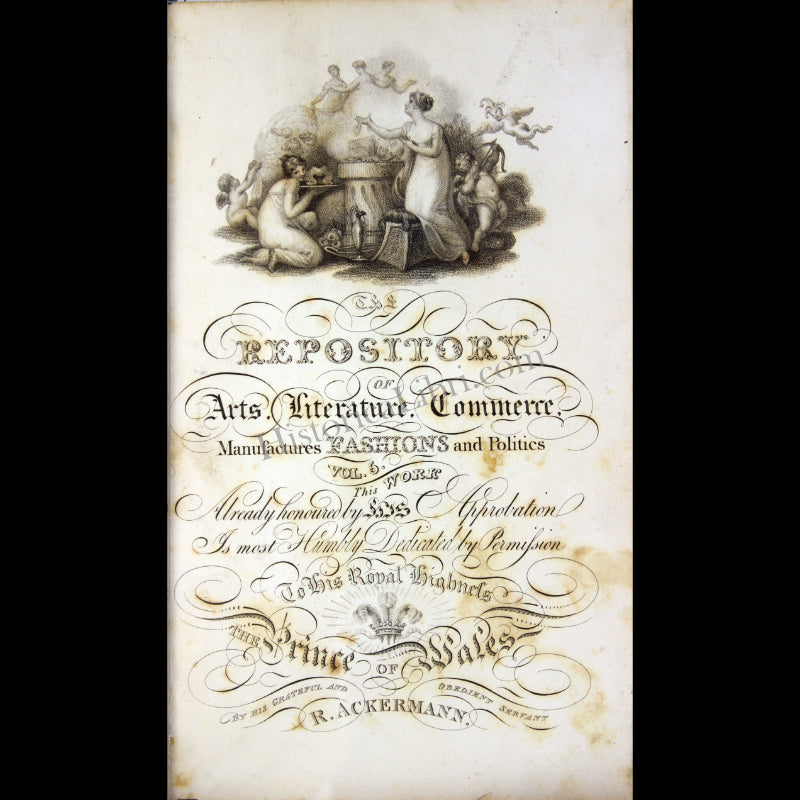 The
REPOSITORY
OF
Arts, Literature, Commerce,
Manufactures FASHIONS and Politics
VOL. 5.
This WORK
Already honoured by HIS Approbation
Is most Humbly Dedicated by Permiſsion
To His Royal Highneſs
THE Prince OF Wales
BY HIS GRATEFUL AND OBEDIENT SERVANT
R. ACKERMANN.
HistoricLibri.com